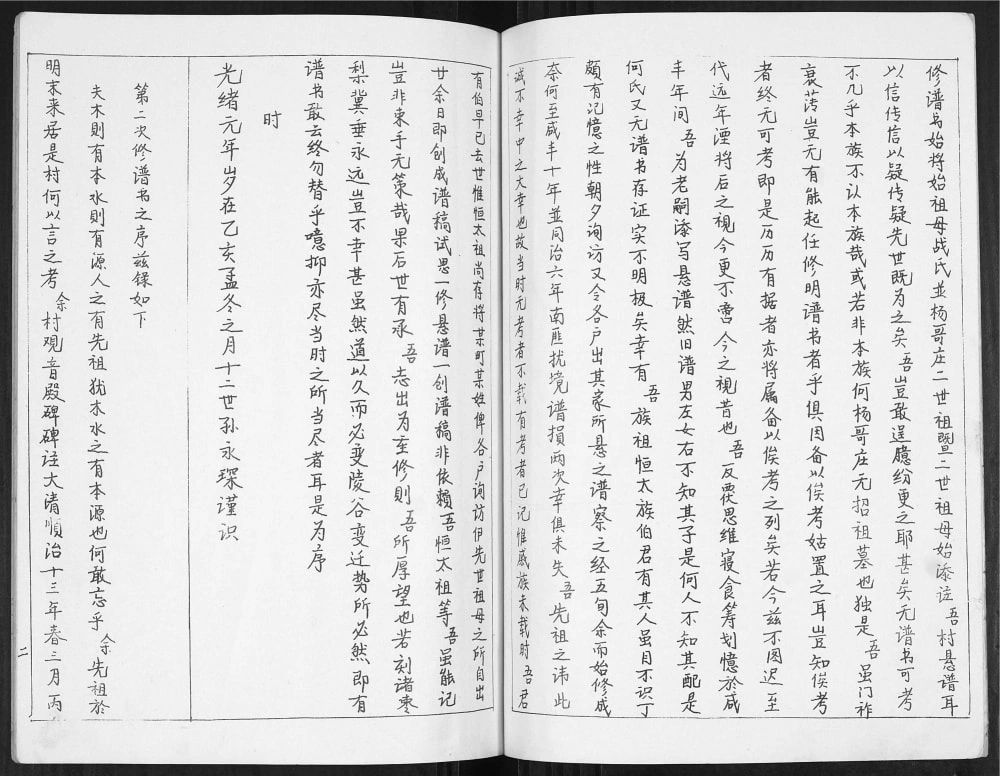 修谱书始将始祖母战氏並杨哥庄二世祖暨二世祖母始添注吾村悬谱耳
以信传信以疑传疑先世既为之矣吾岂敢逞臆纷更之耶甚矣无谱书可考
不几乎本族不认本族哉或若非本族何杨哥庄无招祖墓也独是吾虽门祚
衰落岂无有能起任修明谱书者乎俱因备以俟考姑置之耳岂知俟考
者终无可考即是历历有据者亦将属备以俟考之列矣若今兹不图迟至
代远年湮将后之视今更不啻今之视昔也吾反覆思维寝食筹划憶於咸
丰年间吾为老嗣添写悬谱然旧谱男左女右不知其子是何人不知其配是
何氏又无谱书存证实不明极矣幸有吾族祖恒太族伯君有其人虽目不识丁
颇有记憶之性朝夕询访又令各户出其家所悬之谱察之经五旬余而始修成
奈何至咸丰十年並同治六年南匪扰境谱损两次幸俱未失吾先祖之讳此
诚不幸中之大幸也故当时无考者不载有考者已记惟戚族未载时吾君
有伯早已去世惟恒太祖尚存将某町某姓俾各户询访伊先世祖母之所自出
廿余日即创成谱稿试思一修悬谱一创谱稿非依赖吾恒太祖等吾虽能记
岂非束手无策哉果后世有承吾志出为至修则吾所厚望也若刻诸枣
梨冀垂永远岂不幸甚虽然道以久而必变陵谷变迁势所必然即有
谱书敢云终勿替乎噫抑亦尽当时之所当尽者耳是为序
时
光绪元年岁在乙亥孟冬之月十二世孙永琛谨识
第二次修谱书之序兹录如下
夫木则有本水则有源人之有先祖犹木水之有本源也何敢忘乎余先祖於
明末来居是村何以言之考余村观音殿碑碑注大清順治十三年春三月丙
二